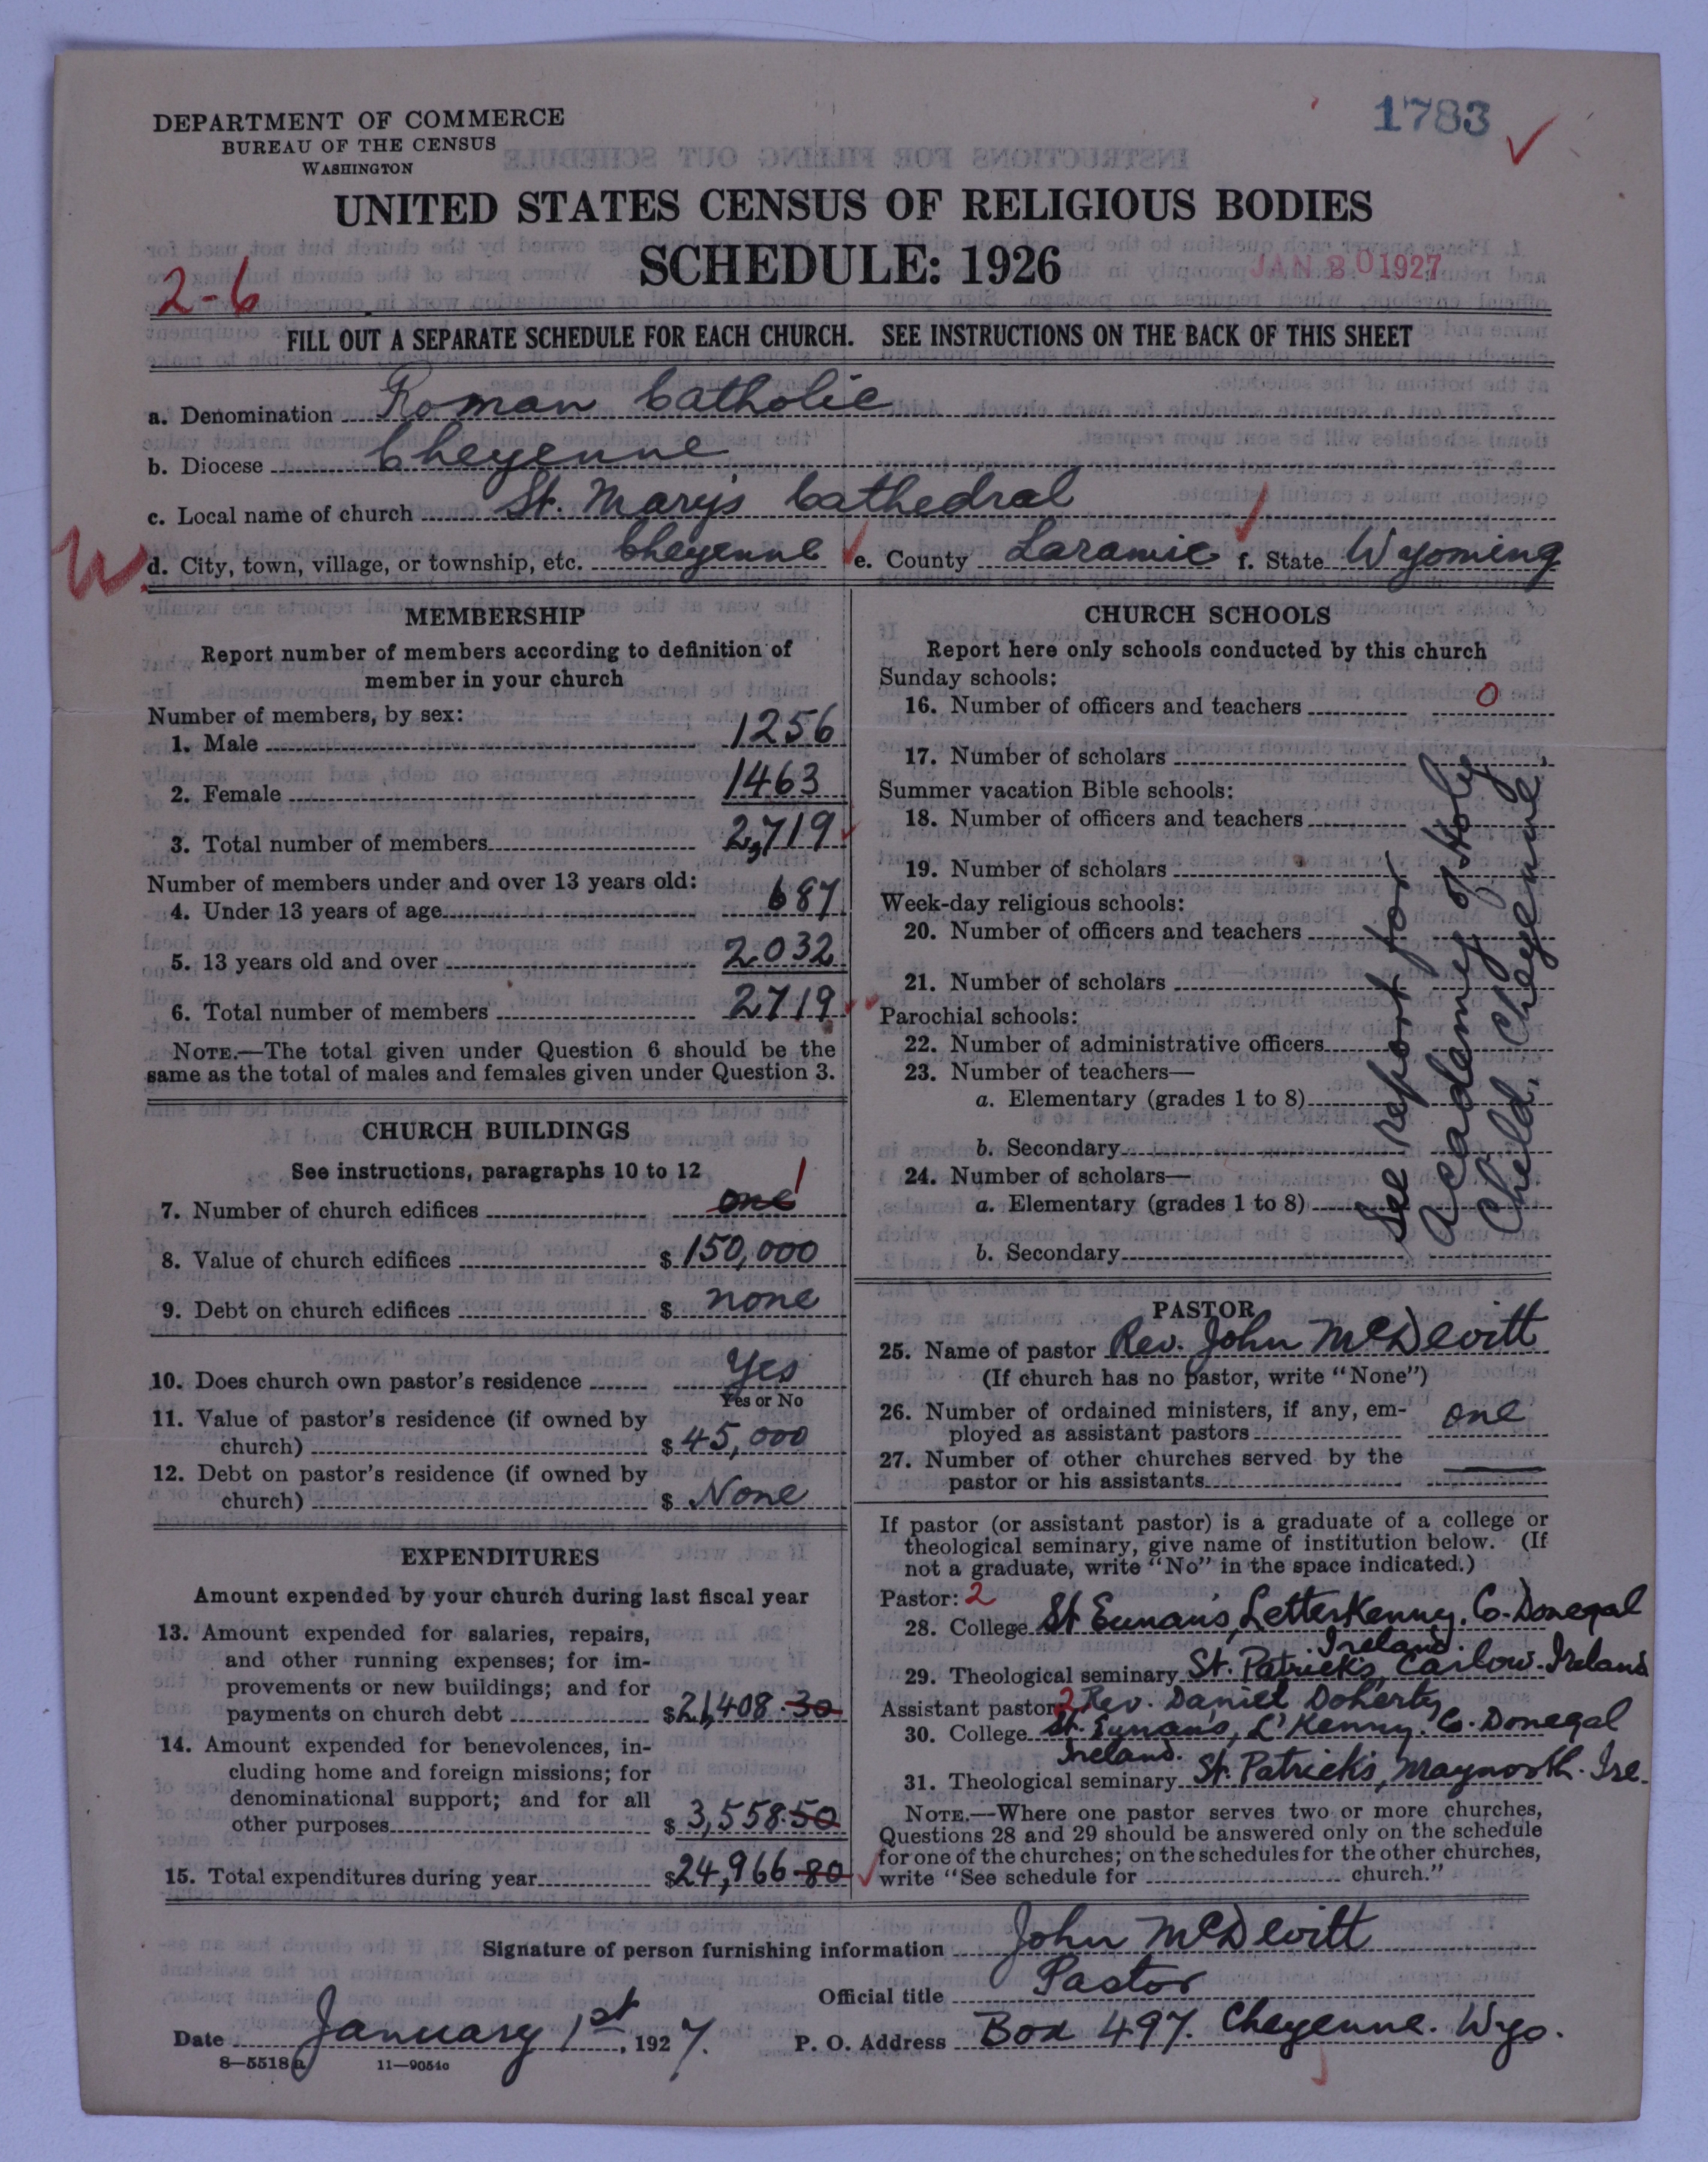 DEPARTMENT OF COMMERCE
BUREAU OF THE CENSUS
WASHINGTON
1783
UNITED STATES CENSUS OF RELIGIOUS BODIES
SCHEDULE: 1926
JAN 20 1927
2-6
FILL OUT A SEPARATE SCHEDULE FOR EACH CHURCH. SEE INSTRUCTIONS ON THE BACK OF THIS SHEET
a. Denomination Roman Catholic
b. Diocese Cheyenne
c. Local name of church St. Mary's Cathedral
W d. City, town, village, or township, etc. Cheyenne e. County Laramie f. State Wyoming
MEMBERSHIP
Report number of members according to definition of
member in your church
Number of members, by sex:
1. Male 1256
2. Female 1463
3. Total number of members 2,719
Number of members under and over 13 years old:
4. Under 13 years of age 687
5. 13 years old and over 2032
6. Total number of members 2719
NOTE.—The total given under Question 6 should be the
same as the total of males and females given under Question 3.
CHURCH BUILDINGS
See instructions, paragraphs 10 to 12
7. Number of church edifices one 1
8. Value of church edifices $ 150,000
9. Debt on church edifices $ none
10. Does church own pastor's residence Yes
Yes or No
11. Value of pastor's residence (if owned by
church) $ 45,000
12. Debt on pastor's residence (if owned by
church) $ None
EXPENDITURES
Amount expended by your church during last fiscal year
13. Amount expended for salaries, repairs,
and other running expenses; for im-
provements or new buildings; and for
payments on church debt $ 21,408.30
14. Amount expended for benevolences, in-
cluding home and foreign missions; for
denominational support; and for all
other purposes $ 3,558.50
15. Total expenditures during year $ 24,966.80
CHURCH SCHOOLS
Report here only schools conducted by this church
Sunday schools:
16. Number of officers and teachers 0
17. Number of scholars
Summer vacation Bible schools:
18. Number of officers and teachers
19. Number of scholars
Week-day religious schools:
20. Number of officers and teachers
21. Number of scholars
Parochial schools:
22. Number of administrative officers
23. Number of teachers—
a. Elementary (grades 1 to 8)
b. Secondary
24. Number of scholars—
a. Elementary (grades 1 to 8)
b. Secondary
See report for
Academy of Holy
Child, Cheyenne
PASTOR
25. Name of pastor Rev. John McDevitt
(If church has no pastor, write "None")
26. Number of ordained ministers, if any, em-
ployed as assistant pastors one
27. Number of other churches served by the
pastor or his assistants —
If pastor (or assistant pastor) is a graduate of a college or
theological seminary, give name of institution below. (If
not a graduate, write "No" in the space indicated.)
Pastor: 2
28. College St Eunan's, LetterKenny. Co. Donegal
Ireland.
29. Theological seminary St. Patrick's, Carlow. Ireland
Assistant pastor 2 Rev. Daniel Doherty
30. College St. Eunan's, L'Kenny. Co. Donegal
Ireland.
31. Theological seminary St. Patrick's, Maynooth. Ire.
NOTE.—Where one pastor serves two or more churches,
Questions 28 and 29 should be answered only on the schedule
for one of the churches; on the schedules for the other churches,
write "See schedule for church."
Signature of person furnishing information John McDevitt
Official title Pastor
Date January 1st, 1927. P. O. Address Box 497. Cheyenne. Wyo.
8—5518a 11—9054c